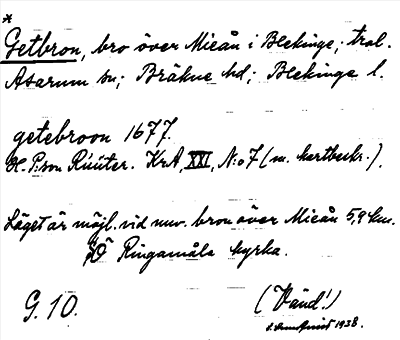 *
Getbron, bro över Mieån i Blekinge; trol.
Asarum sn; Bräkne hd; Blekinge l.
getebroon 1677.
H. P:son Rüüter. KrA, XXI, N:o 7 (m. kartbeskr.).
Läget är möjl. vid nuv. bron över Mieån 5,9 km.
SO Ringamåla kyrka.
G. 10.
(Vänd!)
1938.